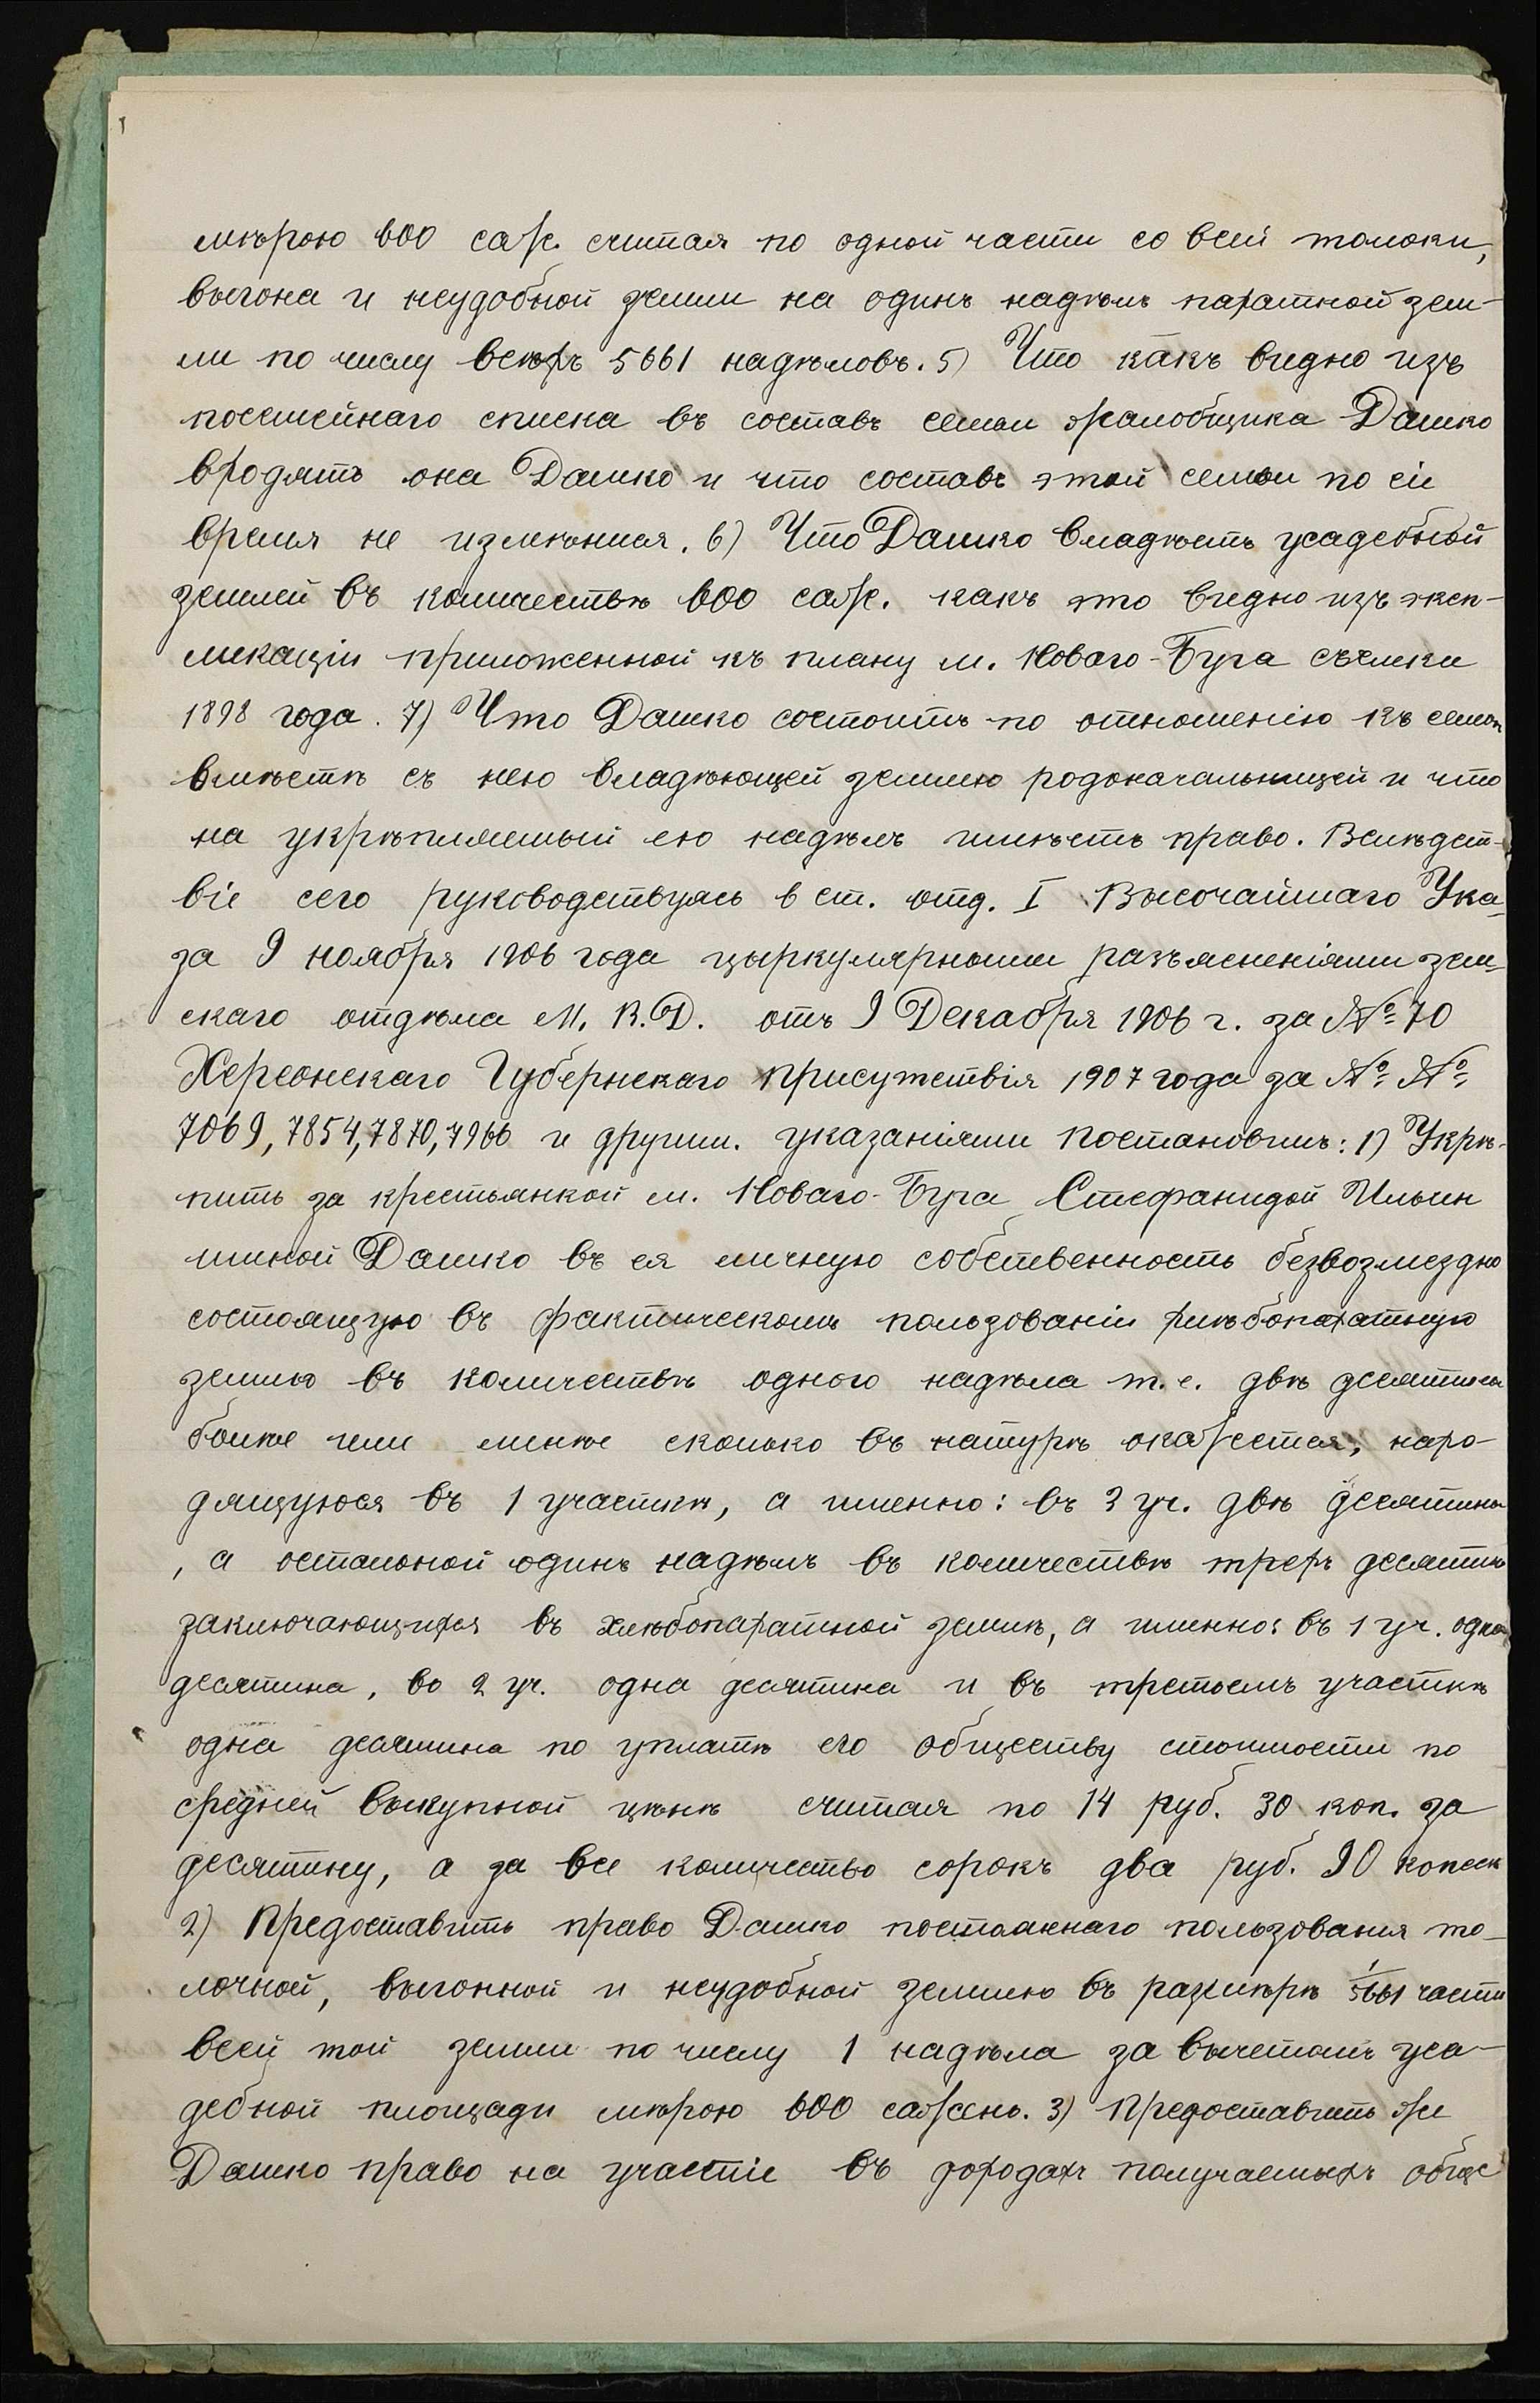 мѣрою 600 саж. считая по одной части со всей толоки,
выгона и неудобной земли на одинъ надѣлъ пахатной зем-
ли по числу всѣхъ 5661 надѣловъ. 5) Что какъ видно изъ
посемейнаго списка въ составъ семьи жалобщика Дашко
входятъ она Дашко и что составъ этой семьи по сіе
время не измѣнися. 6) Что Дашко владѣетъ усадебной
землей въ количествѣ 600 саж. какъ это видно изъ эксп-
ликаціи приложенной къ плану м. Новаго-Буга съемки
1898 года. 7) Что Дашко состоитъ по отношенію къ семьѣ
вмѣстѣ съ нею владѣющей землею родоначальницей и что
на укрѣпляемый ею надѣлъ имѣетъ право. Вслѣдст-
віе сего руководствуясь 6 ст. отд. I Высочайшаго Ука-
за 9 ноября 1906 года цыркулярными разъясненіями зем-
скаго отдѣла М. В. Д. отъ 9 Декабря 1906 г. за № 70
Херсонскаго Губернскаго присутствія 1907 года за № №
7069, 7854, 7870, 7966 и другим. указаніями постановилъ: 1) Укрѣ-
пить за крестьянкой м. Новаго-Буга Стефанидой Ильин
шиной Дашко въ ея личную собственность безвозмездно
состоящую въ фактическомъ пользованіи хлѣбопахатную
землю въ количествѣ одного надѣла т. е. двѣ десятины
болѣе или менѣе сколько въ натурѣ окажется, нахо-
дящуюся въ 1 участкѣ, а именно: въ 3 уч. двѣ десятины
, а остальной одинъ надѣлъ въ количествѣ трехъ десятин
заключающихся въ хлѣбопахатной землѣ, а именно: въ 1 уч. одна
десятина, во 2 уч. одна десятина и въ третьемъ участкѣ
одна десятина по уплатѣ его обществу стоимости по
средней выкупной цѣнѣ считая по 14 руб. 30 коп. за
десятину, а за все количество сорокъ два руб. 90 копеек
2) Предоставить право Дашко постояннаго пользования то-
лочной, выгонной и неудобной землею въ размѣрѣ 1/5661 части
всей той земли по числу 1 надѣла за вычетомъ уса-
дебной площади мѣрою 600 сажень. 3) Предоставить же
Дашко право на участіе въ доходахъ получаемыхъ обще